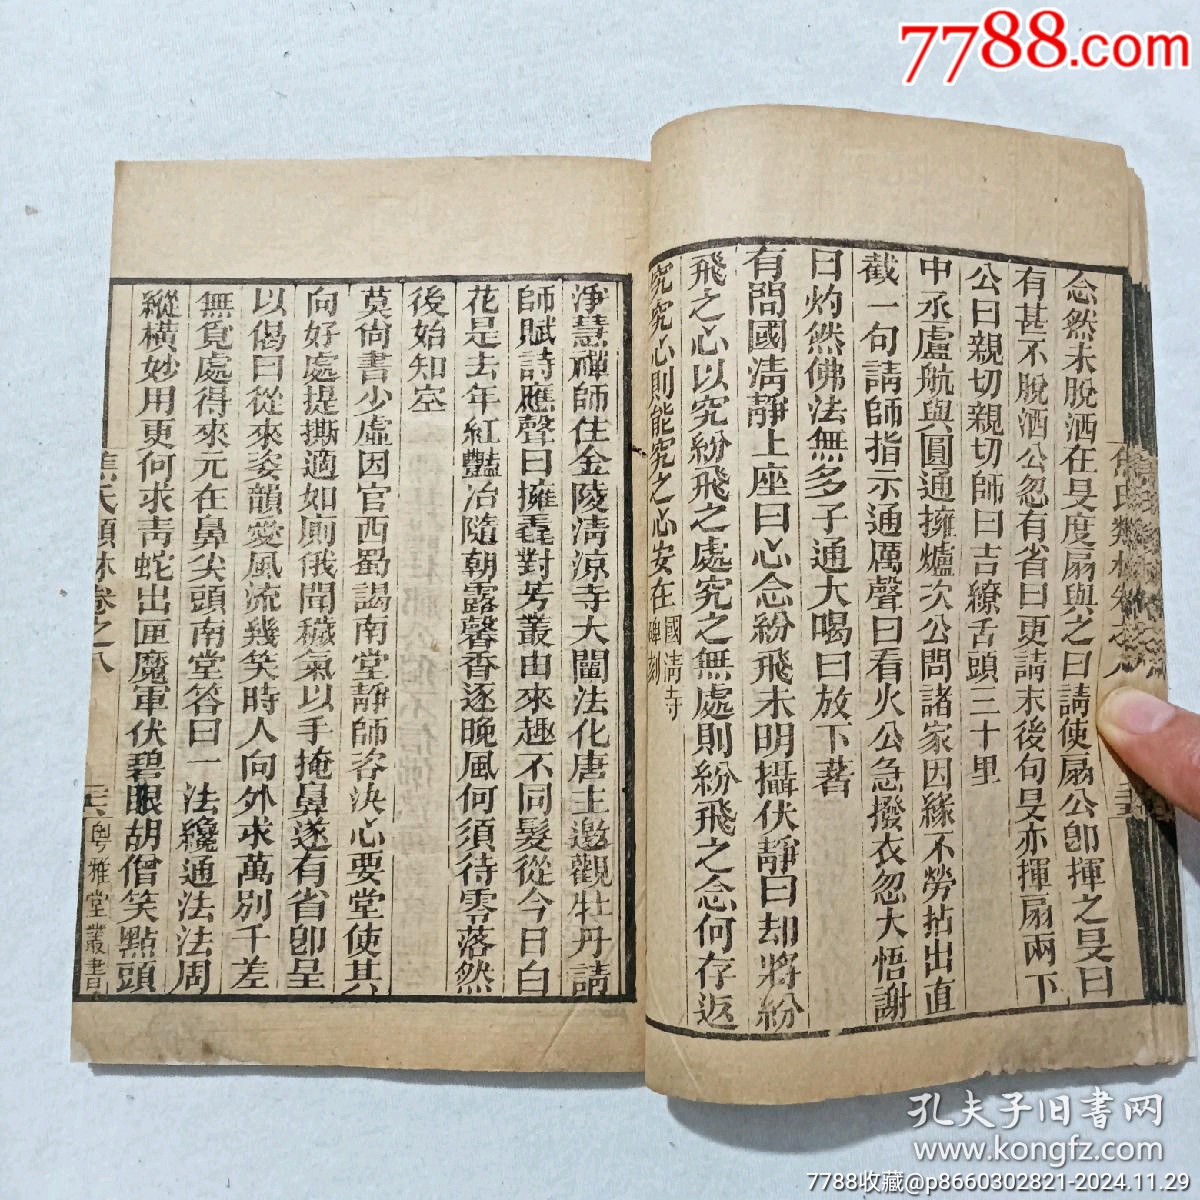 7788.com
念然未脫洒在旻度扇與之曰請使扇公卽揮之旻曰
有甚不脫洒公忽有省曰更請末後句旻亦揮扇兩下
公曰親切親切師曰吉繚舌頭三十里
中丞盧航與圓通擁爐次公問諸家因緣不勞拈出直
截一句請師指示通厲聲曰看火公急撥衣忽大悟謝
曰灼然佛法無多子通大喝曰放下著
有問國淸靜上座曰心念紛飛未明攝伏靜曰却將紛
飛之心以究紛飛之處究之無處則紛飛之念何存返
究究心則能究之心安在國淸寺碑刻
淨慧禪師住金陵淸涼寺大闡法化唐主邀觀牡丹請
師賦詩應聲曰擁毳對芳叢由來趣不同髮從今日白
花是去年紅豔冶隨朝露馨香逐晚風何須待零落然
後始知空
莫尙書少虛因官西蜀謁南堂靜師咨決心要堂使其
向好處提撕適如廁俄聞穢氣以手掩鼻遂有省卽呈
以偈曰從來姿韻愛風流幾笑時人向外求萬別千差
無覓處得來元在鼻尖頭南堂答曰一法纔通法法周
縱橫妙用更何求靑蛇出匣魔軍伏碧眼胡僧笑點頭
焦氏類林卷之八
粤雅堂叢書
孔夫子旧书网
www.kongfz.com
7788收藏@p8660302821-2024.11.29